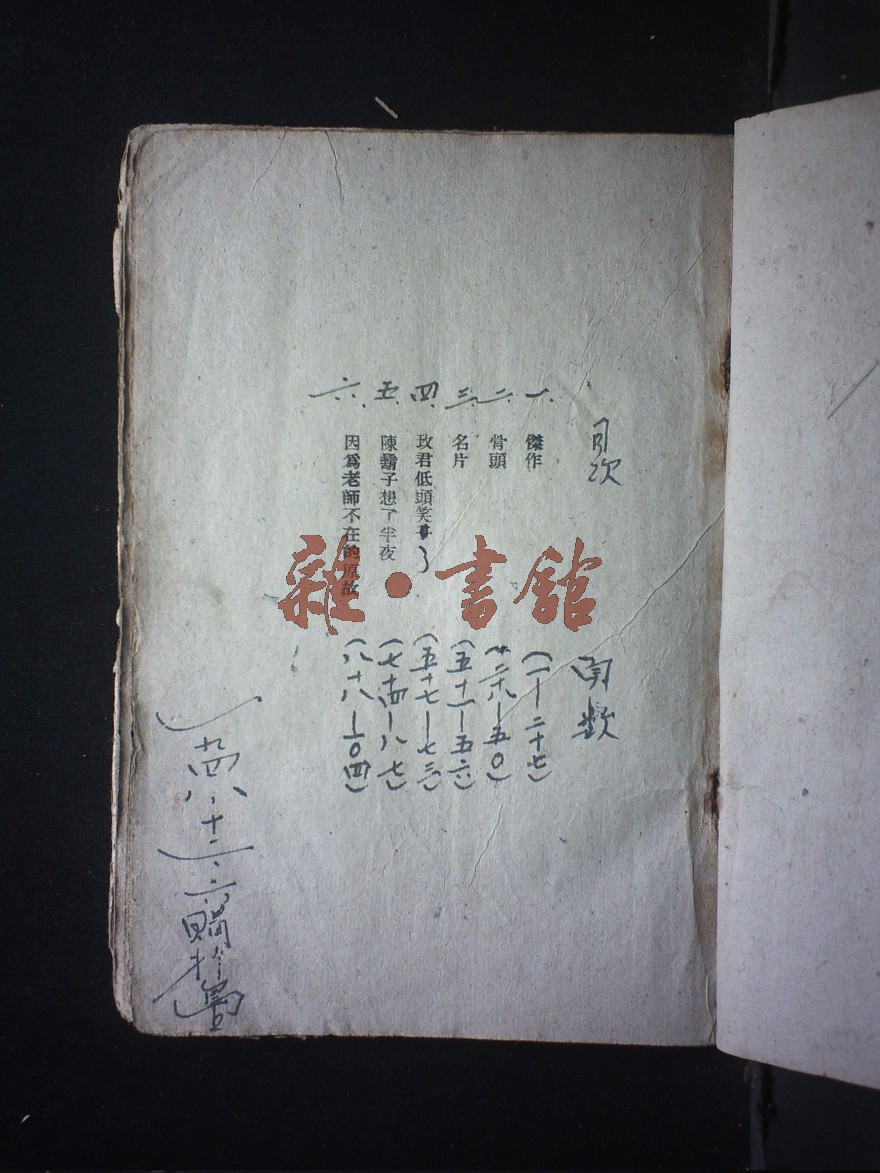 目次
頁数
一、傑作(一—二十七)
二、骨頭(廿八—五〇)
三、名片(五十一—五六)
四、玫君低頭笑了(五十七—七三)
五、陳鬍子想了半夜(七十四—八七)
六、因為老師不在的原故(八十八—一〇四)
一九四八、十二、六購於
雜·書館